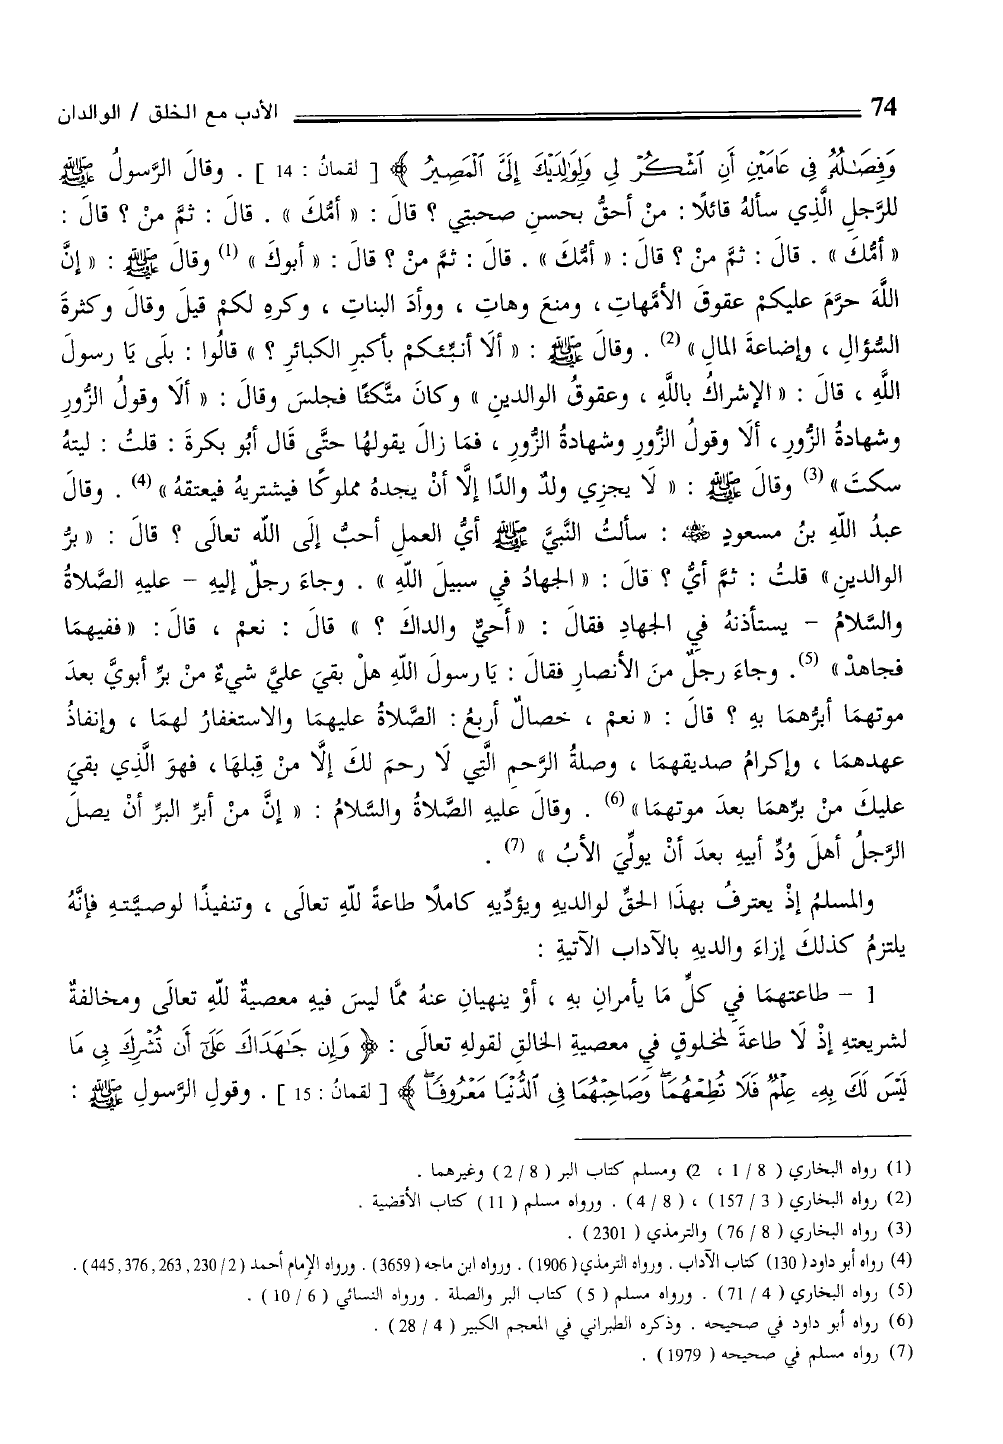 74 الأدب مع الخلق / الوالدان
وَفِصَـٰلُهُۥ فِى عَامَيْنِ أَنِ ٱشْكُرْ لِى وَلِوَٰلِدَيْكَ إِلَىَّ ٱلْمَصِيرُ ﴾ [ لقمانُ : 14 ] . وقالَ الرَّسولُ ﷺ
للرَّجلِ الَّذِي سألهُ قائلًا : منْ أحقُّ بحسنِ صحبتِي ؟ قالَ : « أمُّكَ » . قالَ : ثمَّ منْ ؟ قالَ :
« أمُّكَ » . قالَ : ثمَّ منْ ؟ قالَ : « أمُّكَ » . قالَ : ثمَّ منْ ؟ قالَ : « أبوكَ » (1) وقالَ ﷺ : « إنَّ
اللَّهَ حرَّمَ عليكمْ عقوقَ الأمَّهاتِ ، ومنعَ وهاتِ ، ووأدَ البناتِ ، وكرهِ لكمْ قيلَ وقالَ وكثرةَ
السُّؤالِ ، وإضاعةَ المالِ » (2) . وقالَ ﷺ : « ألَا أنبِّئكمْ بأكبرِ الكبائرِ ؟ » قالُوا : بلَى يَا رسولَ
اللَّهِ ، قالَ : « الإشراكُ باللَّهِ ، وعقوقُ الوالدينِ » وكانَ متَّكئًا فجلسَ وقالَ : « ألَا وقولُ الزُّورِ
وشهادةُ الزُّورِ ، ألَا وقولُ الزُّورِ وشهادةُ الزُّورِ ، فمَا زالَ يقولهَا حتَّى قَال أبُو بكرةَ : قلتُ : ليتهُ
سكتَ » (3) وقالَ ﷺ : « لَا يجزِي ولدٌ والدًا إلَّا أنْ يجدهُ مملوكًا فيشتريهُ فيعتقهُ » (4) . وقالَ
عبدُ اللَّهِ بنُ مسعودٍ رضي الله عنه : سألتُ النَّبيَّ ﷺ أيُّ العملِ أحبُّ إلَى اللَّه تعالَى ؟ قالَ : « برُّ
الوالدينِ » قلتُ : ثمَّ أيُّ ؟ قالَ : « الجهادُ في سبيلَ اللَّهِ » . وجاءَ رجلٌ إليهِ - عليهِ الصَّلاةُ
والسَّلامُ - يستأذنهُ في الجهادِ فقالَ : « أحيٌّ والداكَ ؟ » قالَ : نعمْ ، قالَ : « ففيهمَا
فجاهدْ » (5). وجاءَ رجلٌ منَ الأنصارِ فقالَ : يَا رسولَ اللَّهِ هلْ بقيَ عليَّ شيءٌ منْ برِّ أبويَّ بعدَ
موتهمَا أبرُّهمَا بهِ ؟ قالَ : « نعمْ ، خصالٌ أربعُ : الصَّلاةُ عليهمَا والاستغفارُ لهمَا ، وإنفاذُ
عهدهمَا ، وإكرامُ صديقهمَا ، وصلةُ الرَّحمِ الَّتِي لَا رحمَ لكَ إلَّا منْ قِبلهَا ، فهوَ الَّذِي بقيَ
عليكَ منْ برِّهمَا بعدَ موتهمَا » (6) . وقالَ عليهِ الصَّلاةُ والسَّلامُ : « إنَّ منْ أبرِّ البرِّ أنْ يصلَ
الرَّجلُ أهلَ وُدِّ أبيهِ بعدَ أنْ يولِّيَ الأبُ » (7) .
والمسلمُ إذْ يعترفُ بهذَا الحقِّ لوالديهِ ويؤدِّيهِ كاملًا طاعةً للَّهِ تعالَى ، وتنفيذًا لوصيَّتهِ فإنَّهُ
يلتزمُ كذلكَ إزاءَ والديهِ بالآدابِ الآتيةِ :
1 - طاعتهمَا في كلِّ مَا يأمرانِ بهِ ، أوْ ينهيانِ عنهُ ممَّا ليسَ فيهِ معصيةٌ للَّهِ تعالَى ومخالفةٌ
لشريعتهِ إذْ لَا طاعةَ لمخلوقٍ في معصيةِ الخالقِ لقولهِ تعالَى : ﴿ وَإِن جَـٰهَدَاكَ عَلَىٰٓ أَن تُشْرِكَ بِى مَا
لَيْسَ لَكَ بِهِۦ عِلْمٌ فَلَا تُطِعْهُمَا ۖ وَصَاحِبْهُمَا فِى ٱلدُّنْيَا مَعْرُوفًا ۖ ﴾ [ لقمانُ : 15 ] . وقولِ الرَّسولِ ﷺ :
(1) رواه البخاري ( 8 / 1 ، 2) ومسلم كتاب البر ( 8 / 2 ) وغيرهما .
(2) رواه البخاري ( 3 / 157 ) ، ( 8 / 4 ) . ورواه مسلم ( 11 ) كتاب الأقضية .
(3) رواه البخاري ( 8 / 76 ) والترمذي ( 2301 ) .
(4) رواه أبو داود( 130) كتاب الآداب . ورواه الترمذي ( 1906) . ورواه ابن ماجه ( 3659) . ورواه الإمام أحمد ( 2 / 230, 263, 376, 445) .
(5) رواه البخاري ( 4 / 71 ) . ورواه مسلم ( 5 ) كتاب البر والصلة . ورواه النسائي ( 6 / 10 ) .
(6) رواه أبو داود في صحيحه . وذكره الطبراني في المعجم الكبير ( 4 / 28 ) .
(7) رواه مسلم في صحيحه ( 1979 ) .